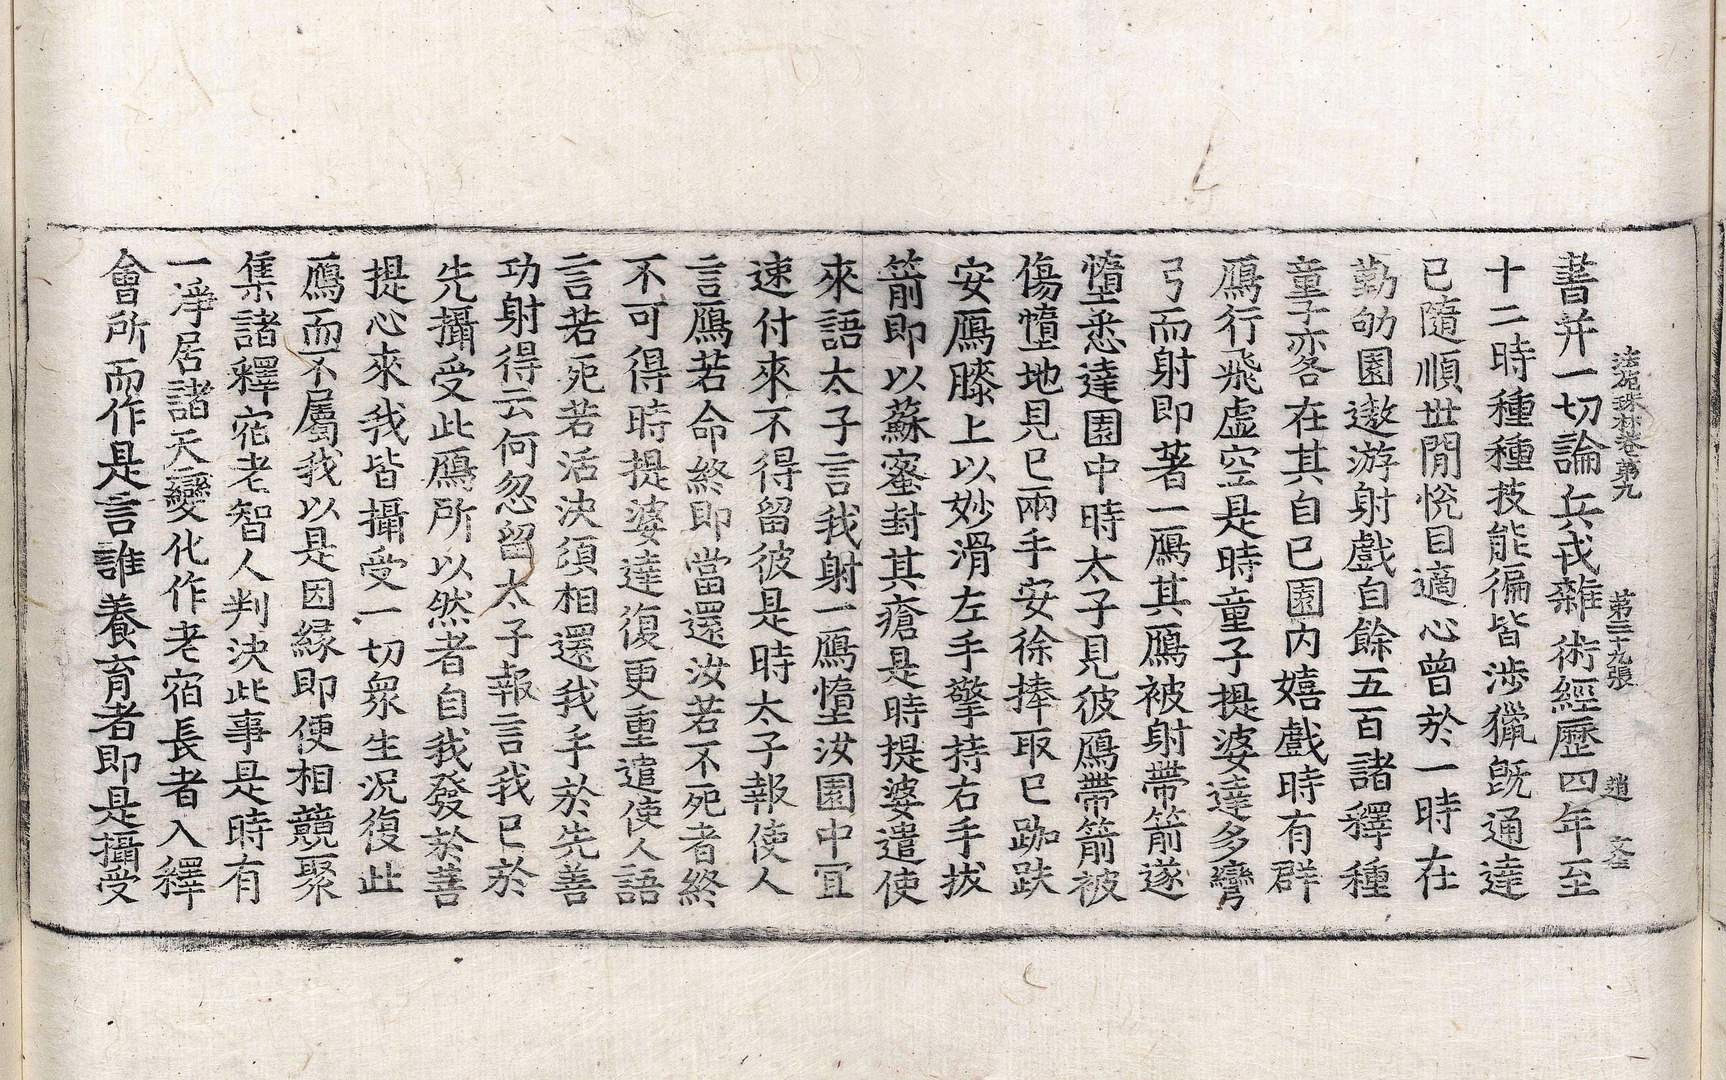 法苑珠林卷第九 第三十九張 趙 文
書并一切論兵戎雜術經歷四年至
十二時種種技能徧皆涉獵旣通達
已隨順世閒悅目適心曾於一時在
勤劬園遨游射戲自餘五百諸釋種
童子亦各在其自己園內嬉戲時有群
鴈行飛虛空是時童子提婆達多彎
弓而射即著一鴈其鴈被射帶箭遂
墮悉達園中時太子見彼鴈帶箭被
傷墮地見已兩手安徐捧取已跏趺
安鴈膝上以妙滑左手擎持右手拔
箭即以蘇蜜封其瘡是時提婆遣使
來語太子言我射一鴈墮汝園中宜
速付來不得留彼是時太子報使人
言鴈若命終即當還汝若不死者終
不可得時提婆達復更重遣使人語
言若死若活決須相還我手於先善
功射得云何忽留太子報言我已於
先攝受此鴈所以然者自我發於菩
提心來我皆攝受一切衆生況復此
鴈而不屬我以是因緣即便相競聚
集諸釋宿老智人判決此事是時有
一淨居諸天變化作老宿長者入釋
會所而作是言誰養育者即是攝受